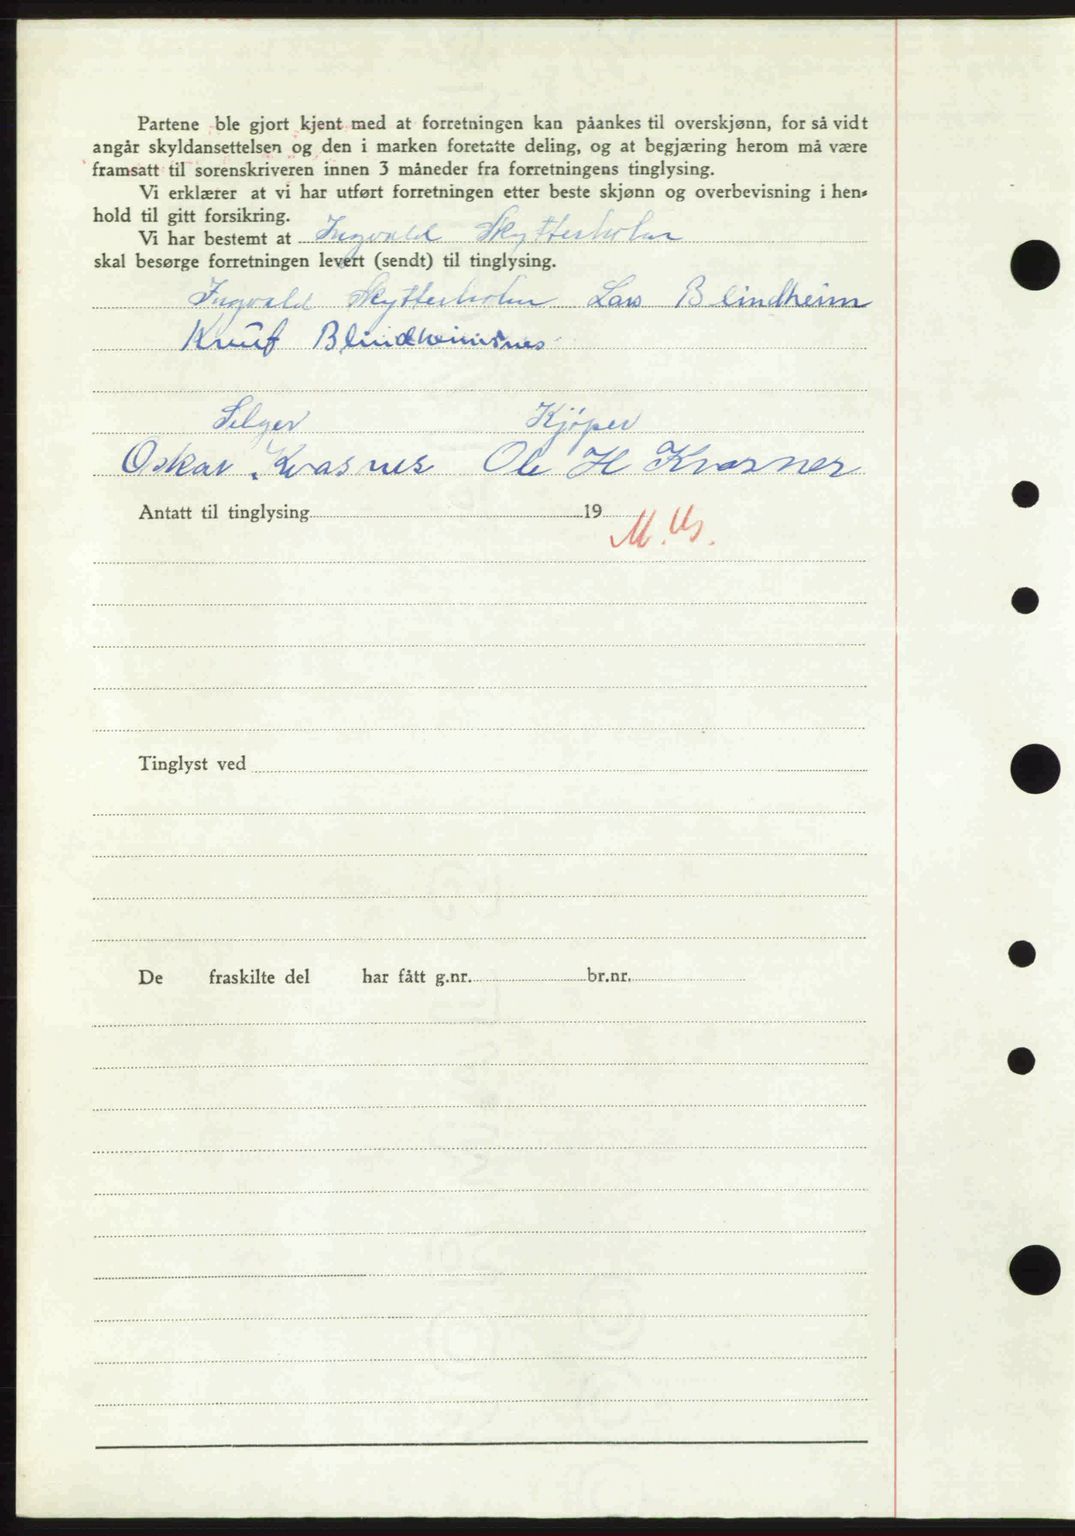 Partene ble gjort kjent med at forretningen kan påankes til overskjønn, for så vidt
angår skyldansettelsen og den i marken foretatte deling, og at begjæring herom må være
framsatt til sorenskriveren innen 3 måneder fra forretningens tinglysing.
Vi erklærer at vi har utført forretningen etter beste skjønn og overbevisning i hen-
hold til gitt forsikring.
Vi har bestemt at Ingvald Skytterholm
skal besørge forretningen levert (sendt) til tinglysing.
Ingvald Skytterholm Lars Blindheim
Knut Blindheimsnes
Selger Kjøper
Oskar Kvasnes Ole H Kvasnes
Antatt til tinglysing 19
Tinglyst ved
De fraskilte del har fått g.nr. br.nr.